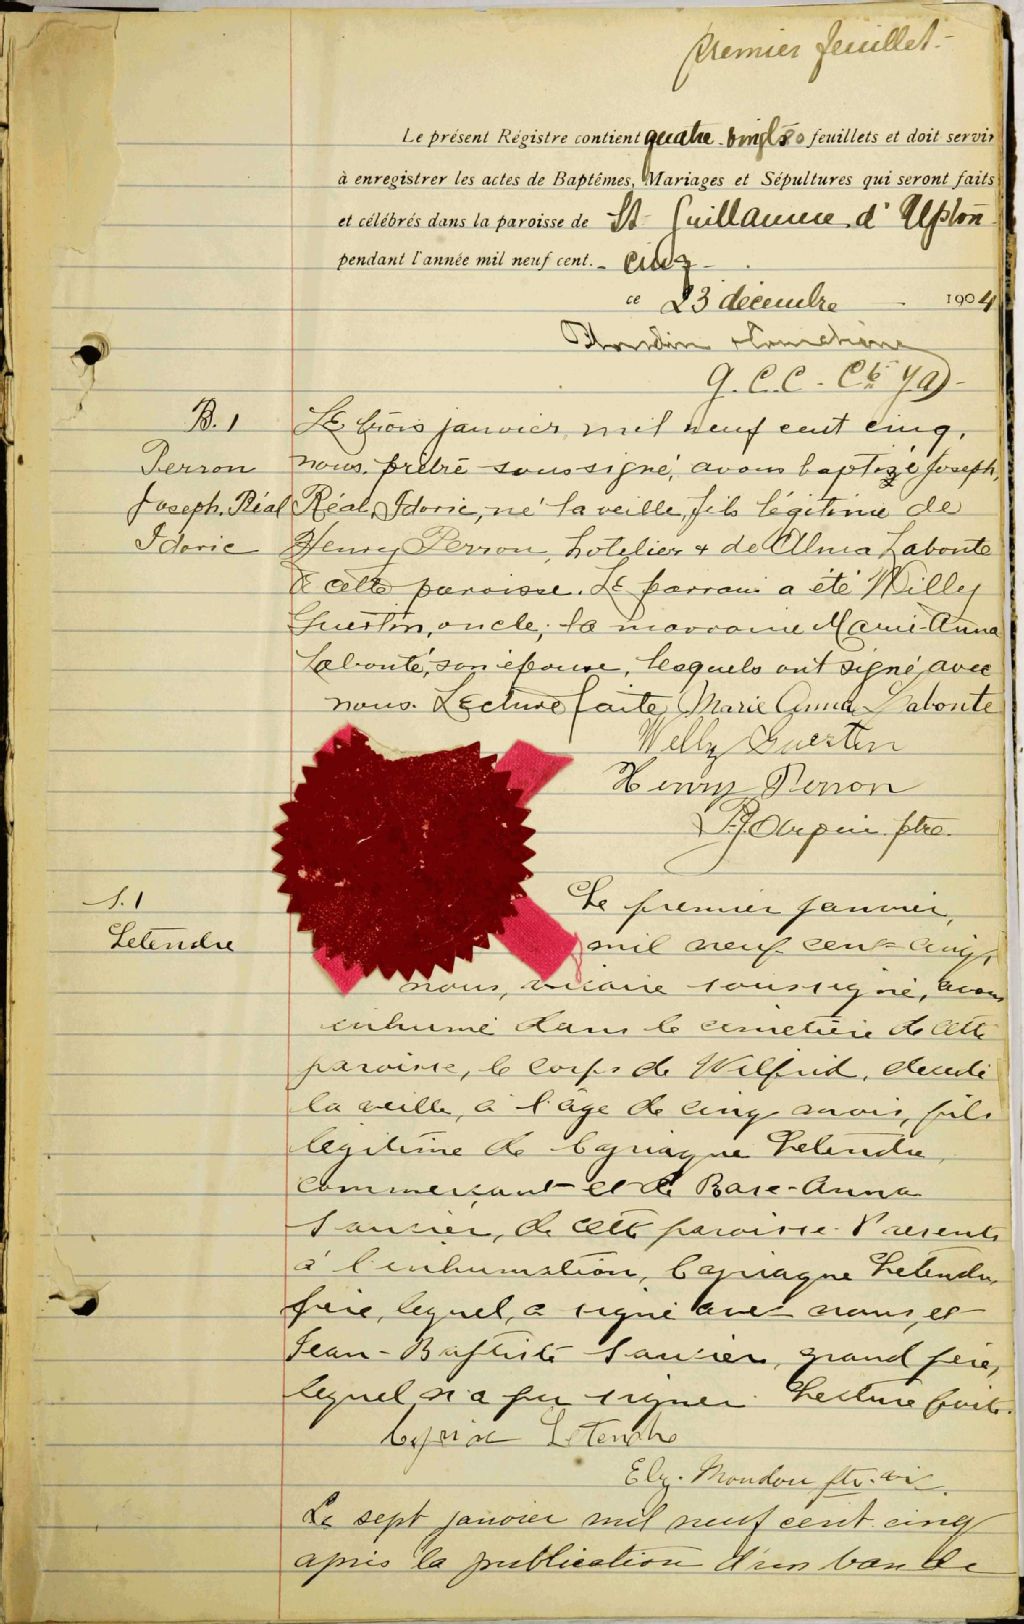 Premier feuillet.
Le présent Régistre contient quatre-vingts 80 feuillets et doit servir
à enregistrer les actes de Baptêmes, Mariages et Sépultures qui seront faits
et célébrés dans la paroisse de St Guillaume d'Upton
pendant l'année mil neuf cent - cinq -
ce 23 décembre 1904
G.C.C.
B. 1
Perron
Joseph, Réal
Idoric
Le trois janvier, mil neuf cent cinq,
nous, prêtre soussigné, avons baptizé Joseph,
Réal, Idoric, né la veille, fils légitime de
Henry Perron, hotelier & de Alma Labonte
de cette paroisse. Le parrain a été Willy
Guertin, oncle; la marraine Marie-Anna
Labonté, son épouse, lesquels ont signé avec
nous. Lecture faite, Marie Anna Labonte
Willy Guertin
Henry Perron
ptre.
S. 1
Letendre
Le premier janvier,
mil neuf cent cinq,
nous, vicaire soussigné, avons
inhumé dans le cimetière de cette
paroisse, le corps de Wilfrid, décédé
la veille, à l'âge de cinq mois, fils
légitime de Cyriaque Letendre,
commerçant et de Rose-Anna
Saucier, de cette paroisse. Présents
à l'inhumation, Cyriaque Letendre,
père, lequel, a signé avec nous, et
Jean-Baptiste Saucier, grand père,
lequel n'a pu signer. Lecture faite.
Letendre
Elz. Mondou ptr. vic.
Le sept janvier mil neuf cent cinq
après la publication d'un ban de